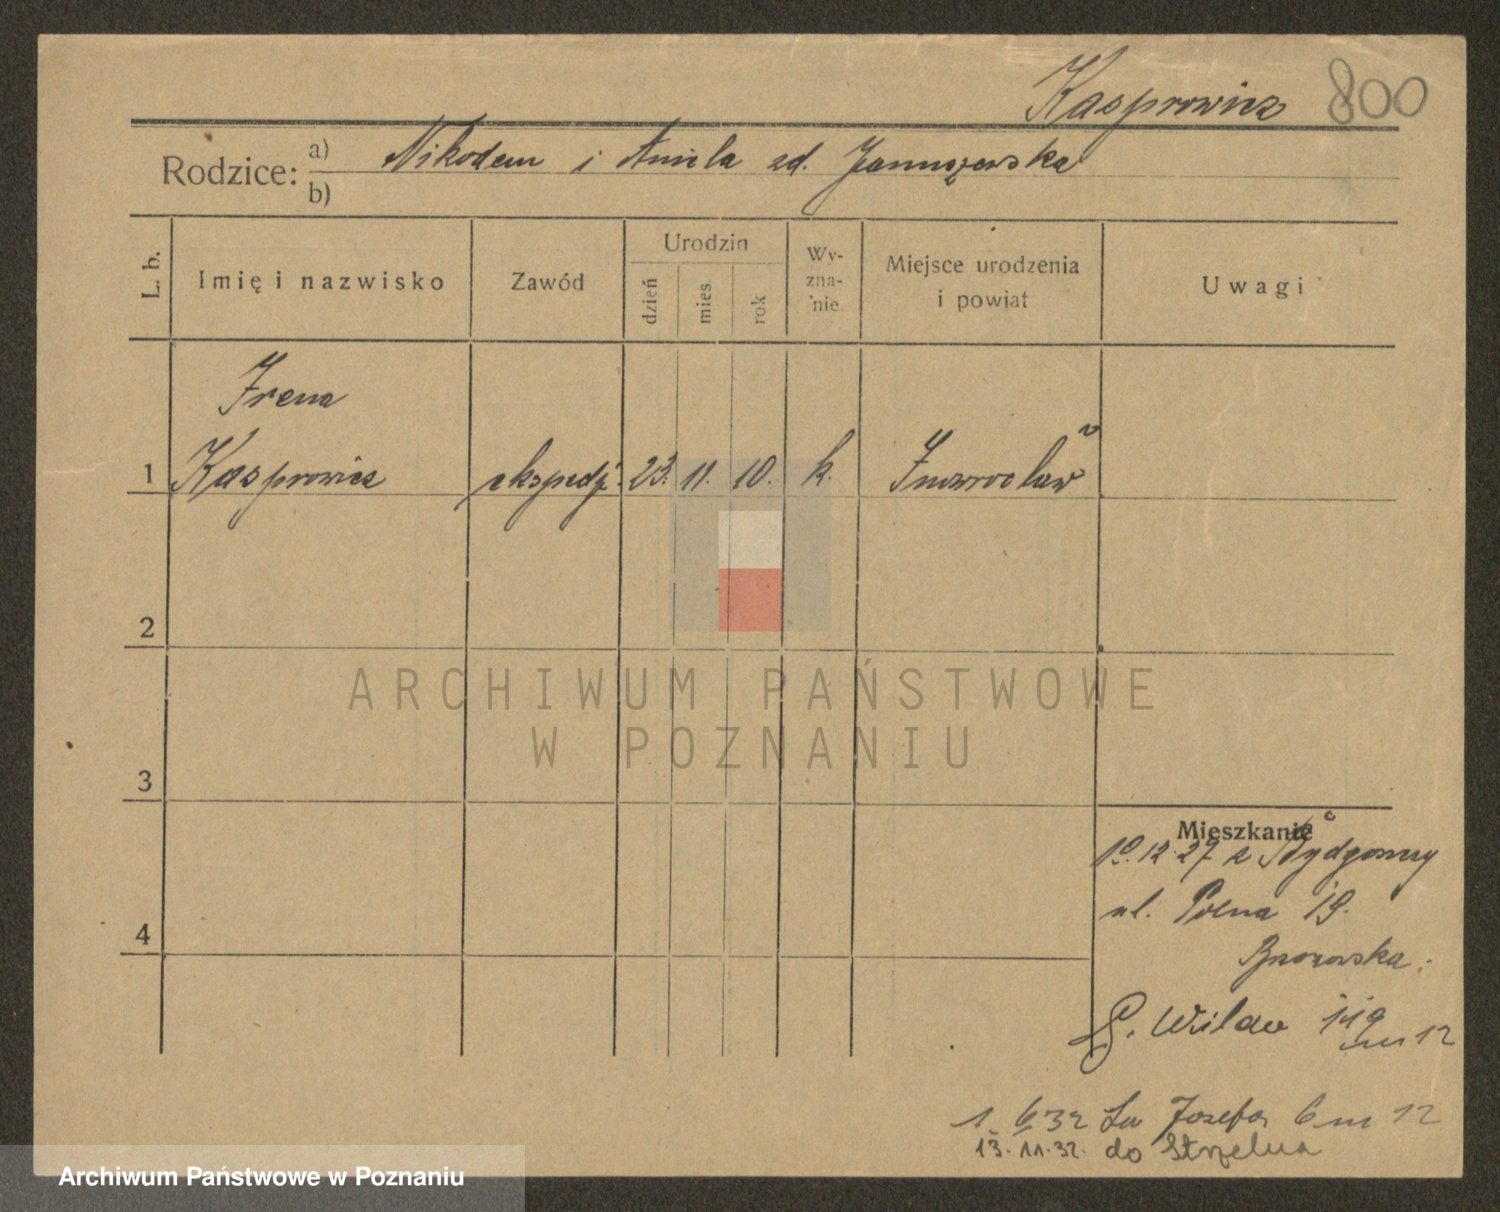 Kasprowicz 800
Rodzice: a) Nikodem i Aniela zd. Januszewska
b)
L. b. Imię i nazwisko Zawód Urodzin dzień mies. rok Wyznanie Miejsce urodzenia i powiat Uwagi
Irena
1 Kasprowicz ekspedj. 23. 11. 10. k. Inowrocław
2
ARCHIWUM PAŃSTWOWE
W POZNANIU
3
Mieszkanie
10.12.27 z Bydgoszczy
ul. Polna 19.
4
Brzozowska.
G. Wilda 119
m 12
1. 6 32 Św Józefa 6 m 12
13. 11. 32. do Strzelna
Archiwum Państwowe w Poznaniu